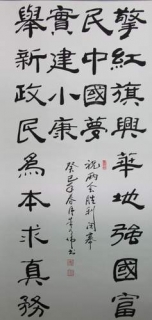 擎紅旗興華地強國富
民中國夢
舉新政民為本求真務
實建小康
祝兩会胜利闭幕
癸巳春月